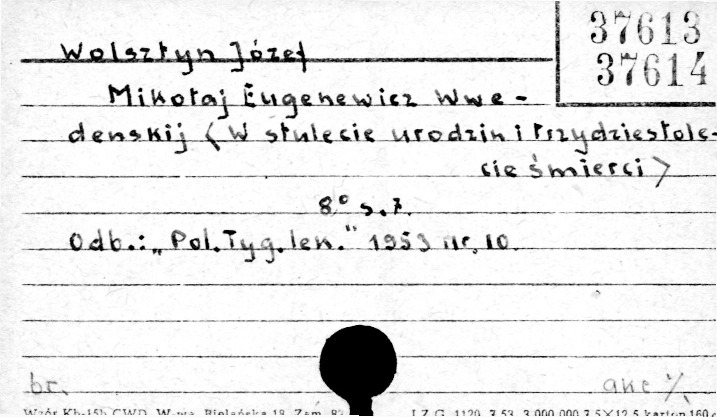 37613
37614
Wolsztyn Józef
Mikołaj Eugenewicz Wwe-
denskij (W stulecie urodzin i trzydziestole-
cie śmierci)
8° s.7.
Odb.: „Pol. Tyg. lek." 1953 nr. 10.
br.
akc %
Wzór Kb-15b CWD, W-wa, Bielańska 18, Zam.
LZG. 1120 7.53 3.000.000 7,5×12,5 karton 160